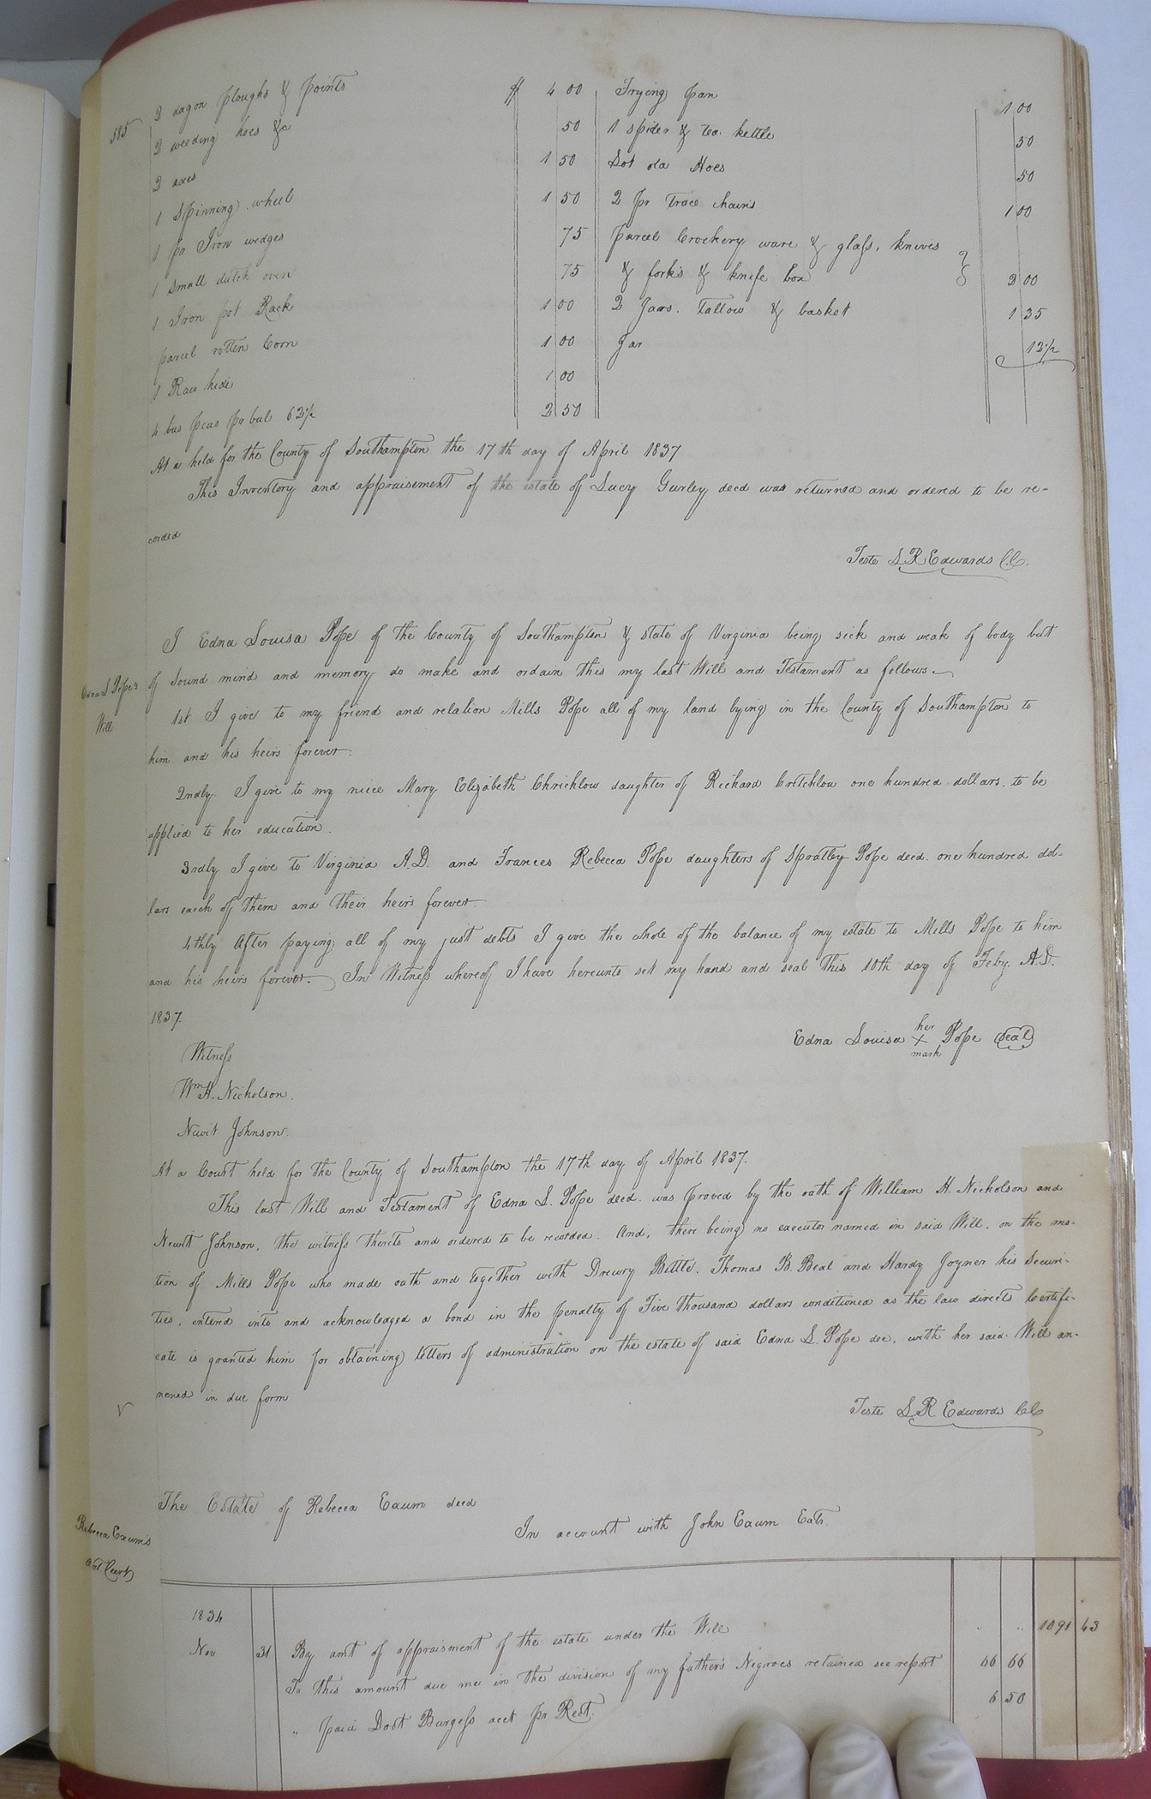 585
2 dagon ploughs & points $ 4 00
2 weeding hoes &c 50
2 axes 1 50
1 Spinning wheel 1 50
1 pr Iron wedges 75
1 small dutch oven 75
1 Iron pot Rack 1 00
parcel rotten Corn 1 00
1 Raw hide 1 00
4 bus peas pr bul 62½ 2 50
Frying pan 1 00
1 spider & tea kettle 50
Lot old Hoes 50
2 pr trace chains 1 00
parcel Crockery ware & glass, knives
& forks & knife box 2 00
2 Jars. Tallow & basket 1 25
Jar 12½
At a held for the County of Southampton the 17th day of April 1837
This Inventory and appraisement of the estate of Lucy Gurley decd was returned and ordered to be re-
corded
Teste L R Edwards C.C.
Edna L Pope's
Will
I Edna Louisa Pope of the County of Southampton & state of Virginia being sick and weak of body but
of sound mind and memory do make and ordain this my last Will and Testament as follows.
1st I give to my friend and relation Mills Pope all of my land lying in the County of Southampton to
him and his heirs forever.
2ndly I give to my niece Mary Elizabeth Chrichlow daughter of Richard Critchlow one hundred dollars. to be
applied to her education.
3rdly I give to Virginia A.D. and Frances Rebecca Pope daughters of Spratley Pope decd. one hundred dol-
lars each of them and their heirs forever
4thly After paying all of my just debts I give the whole of the balance of my estate to Mills Pope to him
and his heirs forever. In Witness whereof I have hereunto set my hand and seal this 10th day of Feby. A.D.
1837.
Edna Louisa her X mark Pope (Seal)
Witness
Wm H. Nicholson.
Newit Johnson.
At a Court held for the County of Southampton the 17th day of April 1837.
This last Will and Testament of Edna L. Pope decd. was proved by the oath of William H. Nicholson and
Newit Johnson, the witness thereto and ordered to be recorded. And, there being no executor named in said Will, on the mo-
tion of Mills Pope who made oath and together with Drewry Bittle, Thomas B. Beal and Hardy Joyner his Securi-
ties, entered into and acknowledged a bond in the penalty of Five thousand dollars conditioned as the law directs Certifi-
cate is granted him for obtaining letters of administration on the estate of said Edna L. Pope dec, with her said Will an-
nexed in due form
Teste L R Edwards CC
Rebecca Exum's
The Estate of Rebecca Exum decd
In account with John Exum Exts.
1834
Nov 21 By amt of appraisment of the estate under the Will " " 1091 43
To this amount due me in the division of my father's Negroes retained see report 66 66
" paid Doct Burgess acct pr Rect. 6 50